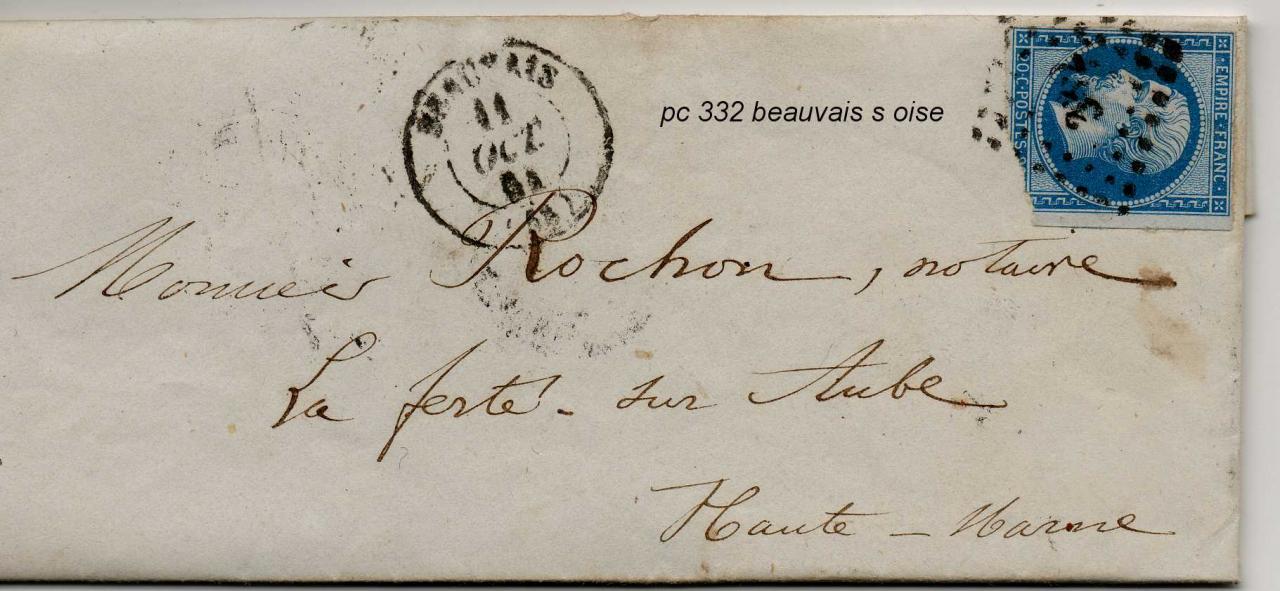 BEAUVAIS
11
OCT
(58)
pc 332 beauvais s oise
EMPIRE · FRANC ·
20 C · POSTES · 
Monsieur Rochon, notaire
La ferté - sur Aube
Haute - Marne